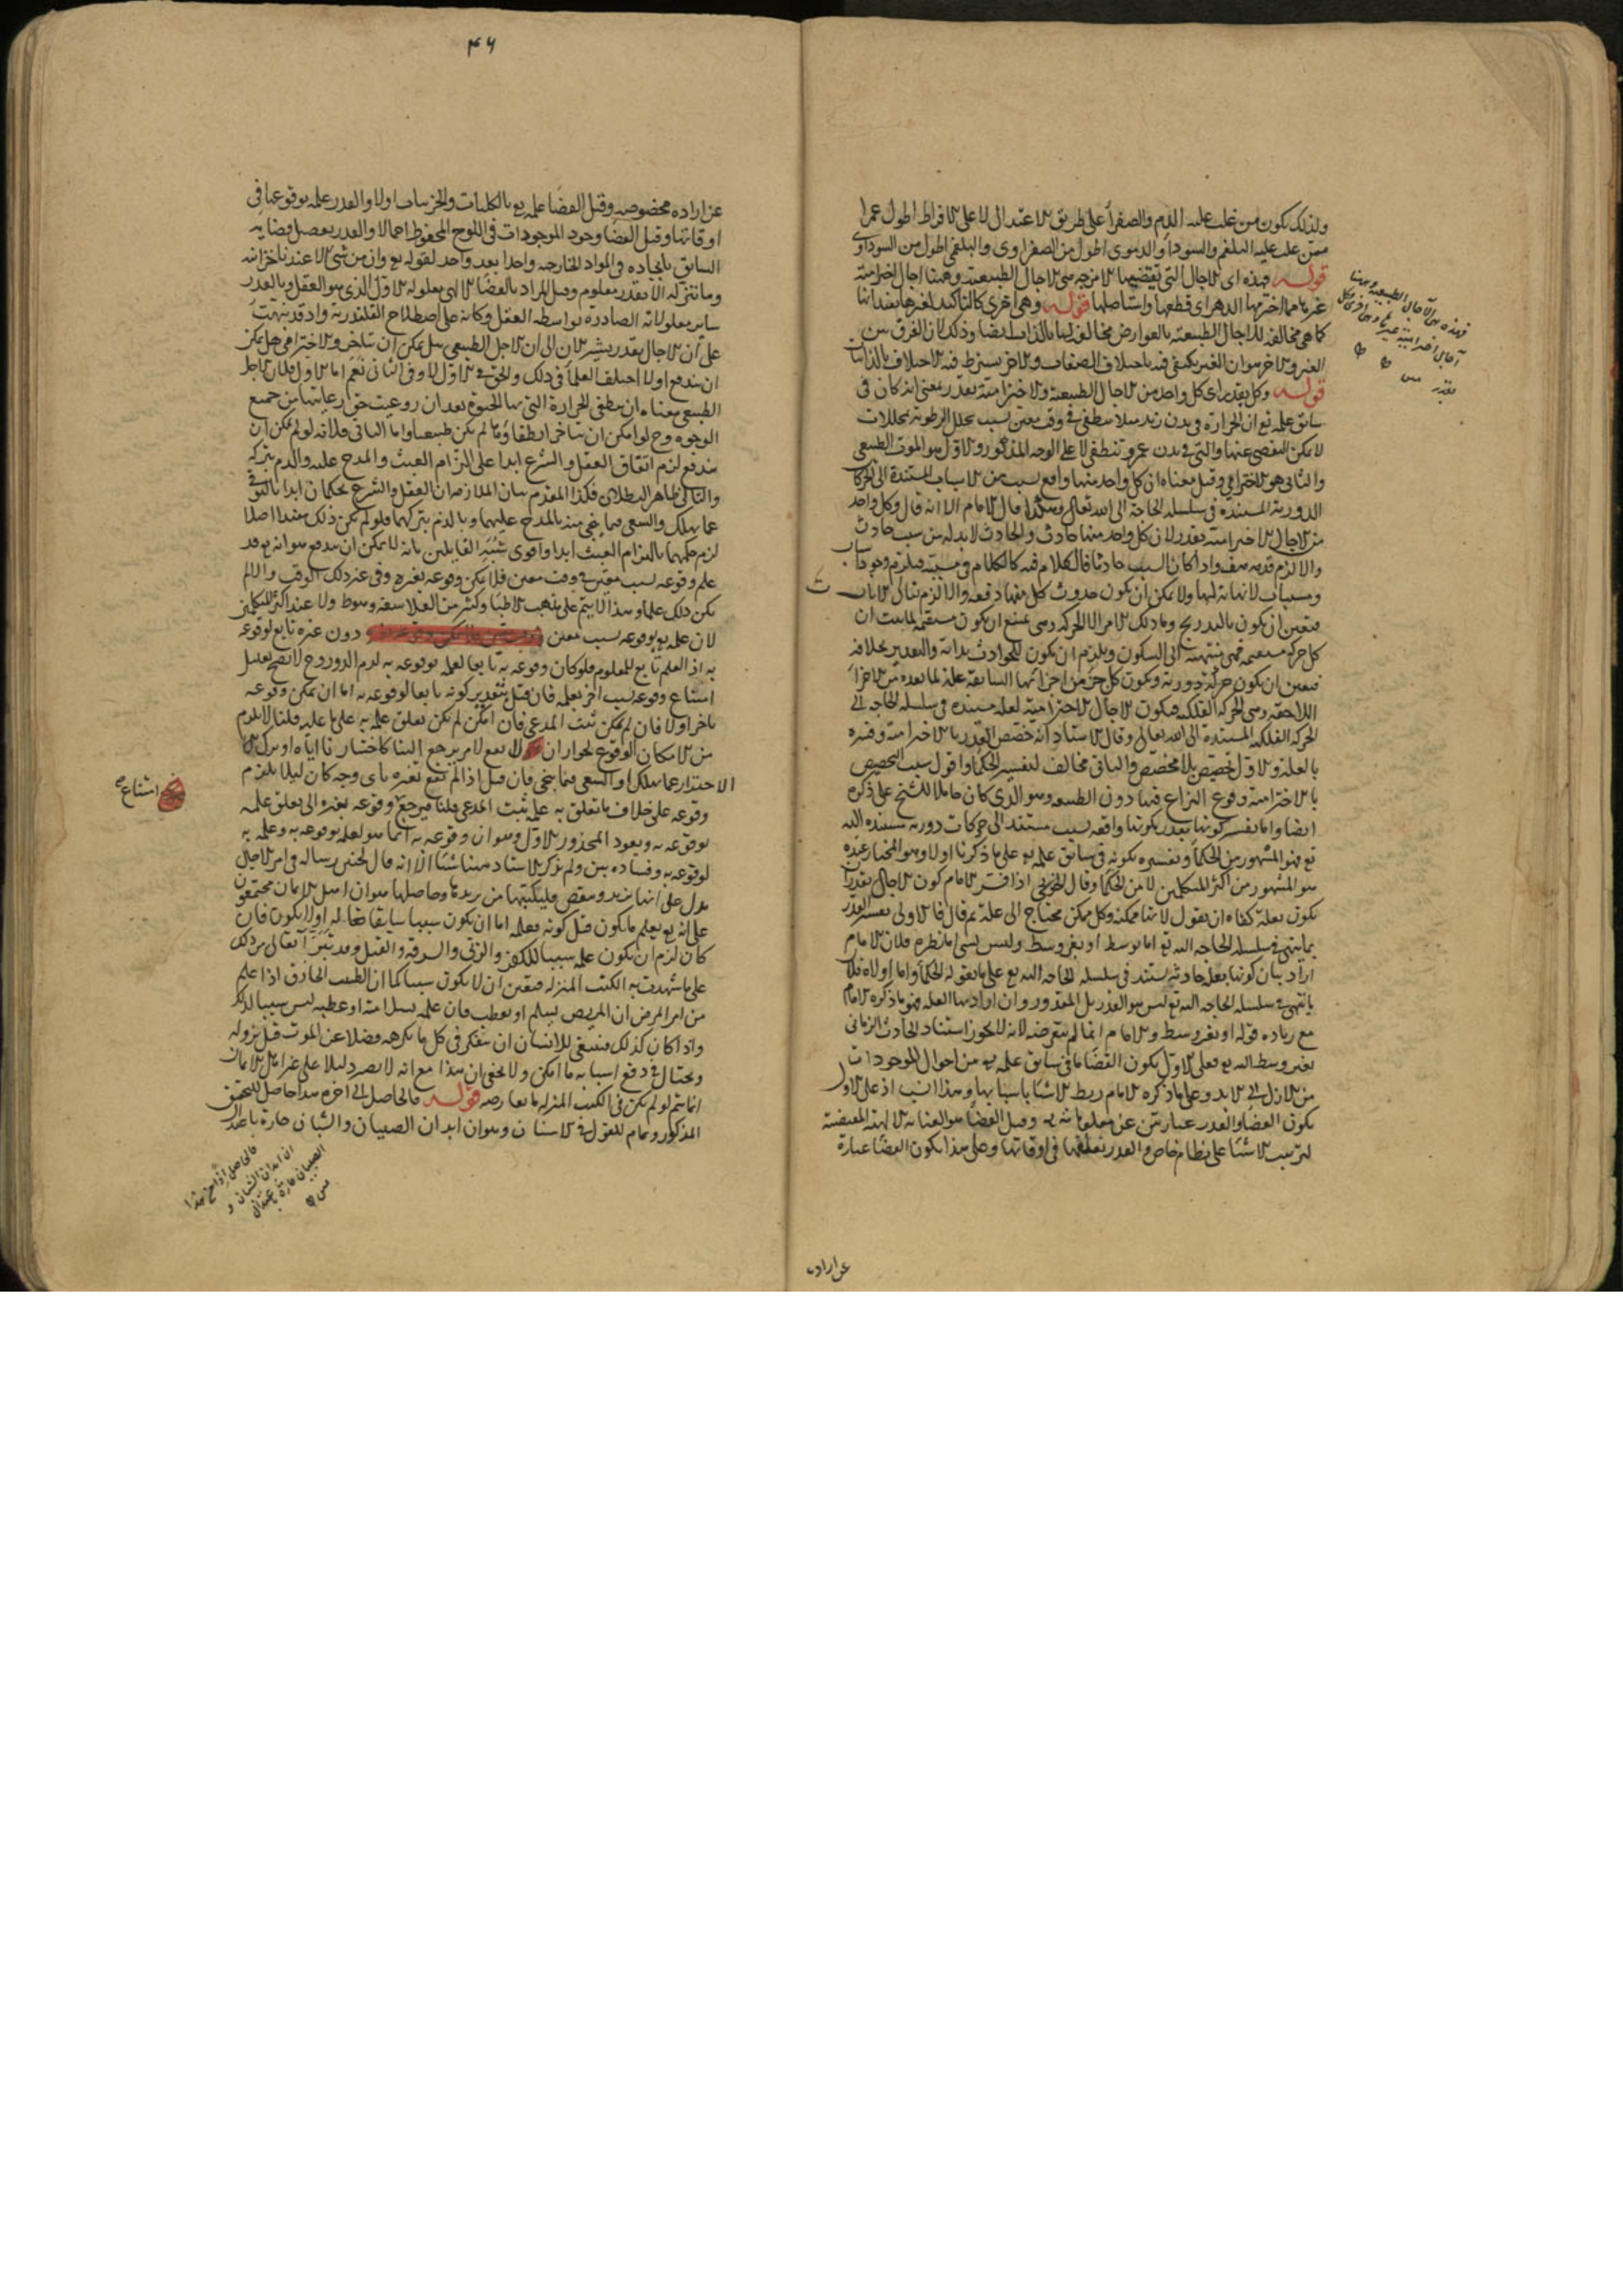 ولذلك يكون من غلب عليه الدم والصفرا على طريق الاعتدال لا على الافراط اطول عمرا
ممن غلب عليه البلغم والسودا والدموى اطول من الصفراوى والبلغمى اطول من السوداوى
قوله فهذه اى الاجال التى تقتضيها الامزجه هى الاجال الطبيعية وههنا اجال اخترامية
غيرها مما اخترمها الدهر اى قطعها واستاصلها قوله وهى اخرى كالتاكيد لغيرها
كما هى مخالفة للاجال الطبيعية بالعوارض مخالفة لها بالذات ايضا وذلك لان الفرق بين
الغير والاخر هو ان الغير يكفى فيه باختلاف الصفات والاخر يشترط فيه الاختلاف بالذات
قوله وكل بقدر اى كل واحد من الاجال الطبيعية والاخترامية بقدر بمعنى انه كان فى
سابق علمه تع ان الحرارة فى بدن زيد مثلا تنطفى فى وقت معين بسبب تحلل الرطوبة بمحللات
لا يمكن التفصى عنها والتى فى بدن عمرو تنطفى لا على الوجه المذكور والاول هو الموت الطبيعى
والثانى هو الاخترامى وقيل معناه ان كل واحد منها واقع بسبب من الاسباب المستندة الى الحركات
الدورية المستنده فى سلسلة الحاجة الى الله تعالى وهكذا قال الامام الا انه قال وكل واحد
من الاجال الاخترامية بقدر لان كل واحد منها حادث والحادث لا بد له من سبب حادث
والا لزم قدمه هف واذا كان السبب حادثا فالكلام فيه كالكلام فى مسببه فيلزم وجود اسباب
ومسببات لا نهاية لها ولا يمكن ان يكون حدوث كل منها دفعة والا لزم تتالى الانات
فتعين ان يكون بالتدريج وما ذلك الامر الا الحركه وهى يمتنع ان يكون مستقيمة لما ثبت ان
كل حركة مستقيمة فهى منتهية الى السكون ويلزم ان يكون للحوادث بداية والتقدير بخلافه
فتعين ان يكون حركة دورية ويكون كل جزء من اجزائها السابقة علة لما بعده من الاجزاء
اللاحقه وهى الحركه الفلكيه فيكون الاجال الاخترامية لعلة مستنده فى سلسلة الحاجه الى
الحركه الفلكيه المستندة الى الله تعالى وقال الاستاد انه خصص القدر بالاخترامية وفسره
بالعلة والاول تخصيص بلا مخصص والثانى مخالف لتفسير الحكما واقول سبب التخصيص
بالاخترامية وقوع النزاع فيها دون الطبيعيه وهو الذى كان حاملا للشيخ على ذكره
ايضا واما تفسير كونها بقدر بكونها واقعه بسبب مستند الى حركات دورية مستنده اليه
تع فهو المشهور من الحكما وتفسيره بكونه فى سابق علمه تع على ما ذكرنا اولا وهو المختار عنده
هو المشهور من اكثر المتكلمين لا من الحكما وقال اذا فسر الامام كون الاجال بقدر بان
يكون بعلة كفاه ان يقول لانها ممكنه وكل ممكن محتاج الى علة ثم قال فالاولى تفسير القدر
بما ينتهى فى سلسلة الحاجه اليه تع اما بوسط او بغير وسط وليس بشى اما نظره فلان الامام
اراد بيان كونها بعلة حادثه يستند فى سلسلة الحاجه اليه تع على ما يقوله الحكما واما اولاه فلان
ما ينتهى فى سلسلة الحاجه اليه تع ليس هو القدر بل المقدور وان اراد بها العله فهو ما ذكره الامام
مع زياده قوله او بغير وسط والامام انما لم يتعرضه لانه لا يجوز استناد الحادث الزمانى
بغير وسط اليه تع فعلى الاول يكون القضا ما فى سابق علمه تع من احوال الموجودات
من الازل الى الابد وعلى ما ذكره الامام ربط الاشيا باسبابها وهذا انسب اذ على الاول
يكون القضا والقدر عبارتين عن معلوماته تع وقيل القضا هو العناية الالهية المقتضية
لترتيب الاشيا على نظام خاص والقدر تعلقها فى اوقاتها وعلى هذا يكون القضا عبارة
فهذه هى الآجال الطبيعيه وههنا
آجال اخترامية غيرها وهى اخرى وكل
بقدر
عن اراده
۴۶
عن اراده مخصوصه وقيل القضا علمه تع بالكليات والجزييات اولا والقدر علمه بوقوعها فى
اوقاتها وقيل القضا وجود الموجودات فى اللوح المحفوظ اجمالا والقدر تفصيل قضايه
السابق بايجاده فى المواد الخارجيه واحدا بعد واحد لقوله تع وان من شى الا عندنا خزائنه
وما ننزله الا بقدر معلوم وقيل المراد بالقضا معلوله الاول الذى هو العقل وبالقدر
ساير معلولاته الصادرة بواسطه العقل وكانه على اصطلاح القلندرية واذ قد نبهت
على ان الاجال بقدر يشير الان الى ان الاجل الطبيعى هل يمكن ان يتاخر والاخترامى هل يمكن
ان يندفع اولا اختلف العلما فى ذلك والحق فى الاول لا وفى الثانى نعم اما الاول فلان الاجل
الطبيعى معناه ان تنطفى الحرارة التى بها الحيوة بعد ان روعيت حق رعايتها من جميع
الوجوه وح لو امكن ان يتاخر انطفاؤها لم يكن طبيعيا واما الثانى فلانه لو لم يمكن ان
يندفع لزم اتفاق العقل والشرع ابدا على التزام العبث والمدح عليه والذم بتركه
والتالى ظاهر البطلان فكذا المقدم بيان الملازمه ان العقل والشرع يحكمان ابدا بالتوقى
عما يهلك والسعى فيما ينجى منه بالمدح عليهما وبالذم بتركهما فلو لم يكن ذلك مفيدا اصلا
لزم حكمهما بالتزام العبث ابدا واقوى شبه القايلين بانه لا يمكن ان يندفع هو انه تع قد
علم وقوعه بسبب معين فى وقت معين فلا يمكن وقوعه بغيره وفى غير ذلك الوقت والا لم
يكن ذلك علما وهذا لا يتم على مذهب الاطبا وكثير من الفلاسفة وهو ط ولا عند اكثر المتكلمين
لان علمه تع بوقوعه بسبب معين دون غيره تابع لوقوعه
به اذ العلم تابع للمعلوم فلو كان وقوعه به تابعا لعلمه بوقوعه به لزم الدور وح لا يصح تعليل
امتناع وقوعه بسبب اخر بعلمه فان قيل بتقدير كونه تابعا لوقوعه به اما ان يمكن وقوعه
باخر اولا فان لم يمكن ثبت المدعى فان امكن لم يكن تعلق علمه به على ما عليه قلنا لا يلزم
من الامكان الوقوع لجواز ان لا يقع لامر يرجع الينا كاختيارنا اياه او ترك
الاحتراز عما يهلك او السعى فيما ينجى فان قيل اذا لم يقع بغيره باى وجه كان ليلا يلزم
وقوعه على خلاف ما تعلق به علمه ثبت المدعى قلنا فيرجع وقوعه بغيره الى تعلق علمه
بوقوعه به ويعود المحذور الاول وهو ان وقوعه به انما هو لعلمه بوقوعه به وعلمه به
لوقوعه به وفساده بين ولم يذكر الاستاد ههنا شيا الا انه قال لحنين رساله فى امر الاجال
يدل على انها تزيد وتنقص فليكتبها من يريدها وحاصلها هو ان اهل الاديان مجتمعون
على انه تع يعلم ما يكون قبل كونه فعلمه اما ان يكون سببا سابقا له اولا يكون فان
كان لزم ان يكون علمه سببا للكفر والزنى والسرقه والقتل وقد تبرأ تعالى من ذلك
على ما شهدت به الكتب المنزله فتعين ان لا يكون سببا كما ان الطبيب الحاذق اذا علم
من امر المرض ان المريض يسلم او يعطب فان علمه بسلامته او عطبه ليس سببا لذلك
واذا كان كذلك فينبغى للانسان ان يتفكر فى كل ما يكرهه فضلا عن الموت قبل نزوله
ويحتال فى دفع اسبابه ما امكن ولا يخفى ان هذا مع انه لا يصير دليلا على غير اهل الاديان
انما يتم لو لم يكن فى الكتب المنزله ما يعارضه قوله فالحاصل الى اخره هذا حاصل التحقيق
المذكور وتمام للقول فى الاسنان وهو ان ابدان الصبيان والشبان حارة باعتدال
امتناع صح
فالحاصل اذا من هذا
ان ابدان الشبان و
الصبيان حارة باعتدال